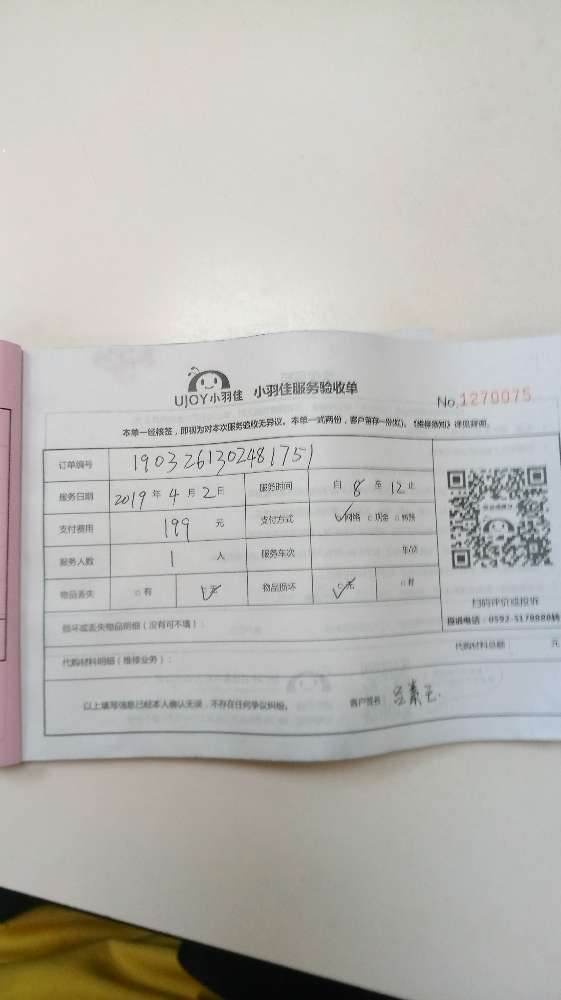 UJOY小羽佳 小羽佳服务验收单
No.1270075
本单一经核签，即视为对本次服务验收无异议。本单一式两份，客户留存一份(红)。《维修须知》详见背面。
订单编号 1903261302481751
服务日期 2019年4月2日 服务时间 自8至12止
支付费用 199元 支付方式 网络 现金 转账
服务人数 1人 服务车次 车/次
物品丢失 有 无 物品损坏 无 有
扫码评价或投诉
投诉电话：0592-5178888转
损坏或丢失物品明细（没有可不填）：
代购材料明细（维修业务）： 代购材料总额 元
以上填写信息已经本人确认无误，不存在任何争议纠纷。 客户签名